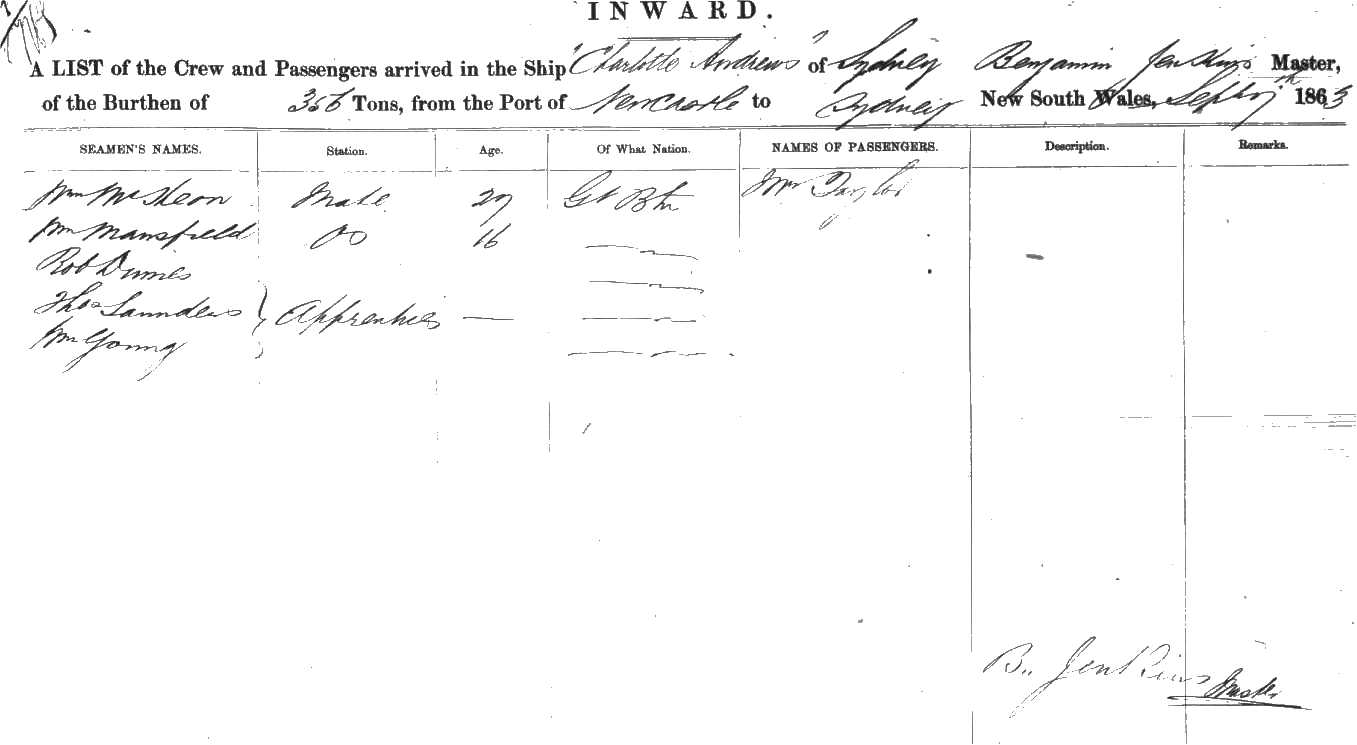 INWARD.
A LIST of the Crew and Passengers arrived in the Ship "Charlotte Andrews" of Sydney Benjamin Jenkins Master,
of the Burthen of 356 Tons, from the Port of Newcastle to Sydney New South Wales, 1863
SEAMEN'S NAMES. Station. Age. Of What Nation. NAMES OF PASSENGERS. Description. Remarks.
Wm McKeon Mate 27 Gt Btn Mr Taylor
Wm Mansfield OS 16
Rob
Thos Saunders Apprentices —
Wm Young
B. Jenkins Master